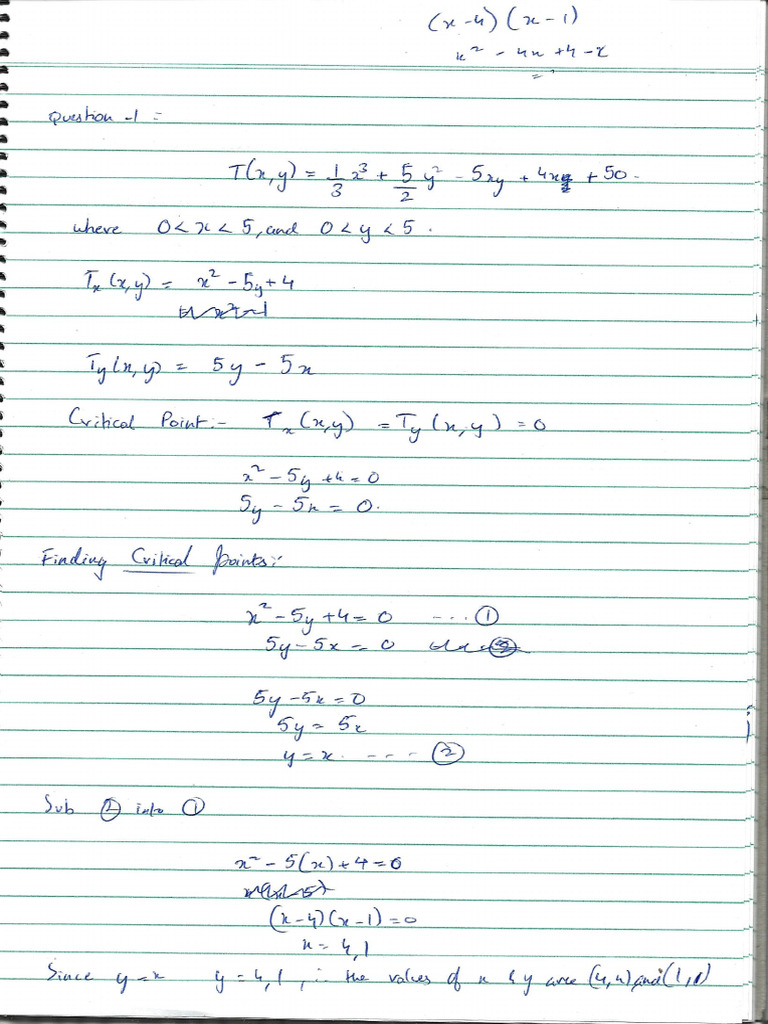 (x-4)(x-1)
x² - 4x + 4 - x
=
Question -1 =
T(x,y) = 1/3 x³ + 5/2 y² - 5xy + 4x + 50.
where 0 < x < 5, and 0 < y < 5.
Tx(x,y) = x² - 5y + 4
Ty(x,y) = 5y - 5x
Critical Point:- Tx(x,y) = Ty(x,y) = 0
x² - 5y + 4 = 0
5y - 5x = 0.
Finding Critical points:-
x² - 5y + 4 = 0 ---- ①
5y - 5x = 0
5y - 5x = 0
5y = 5x
y = x. ---- ②
Sub ② into ①
x² - 5(x) + 4 = 0
(x-4)(x-1) = 0
x = 4, 1
Since y = x y = 4, 1, ∴ the values of x & y are (4,4) and (1,1)